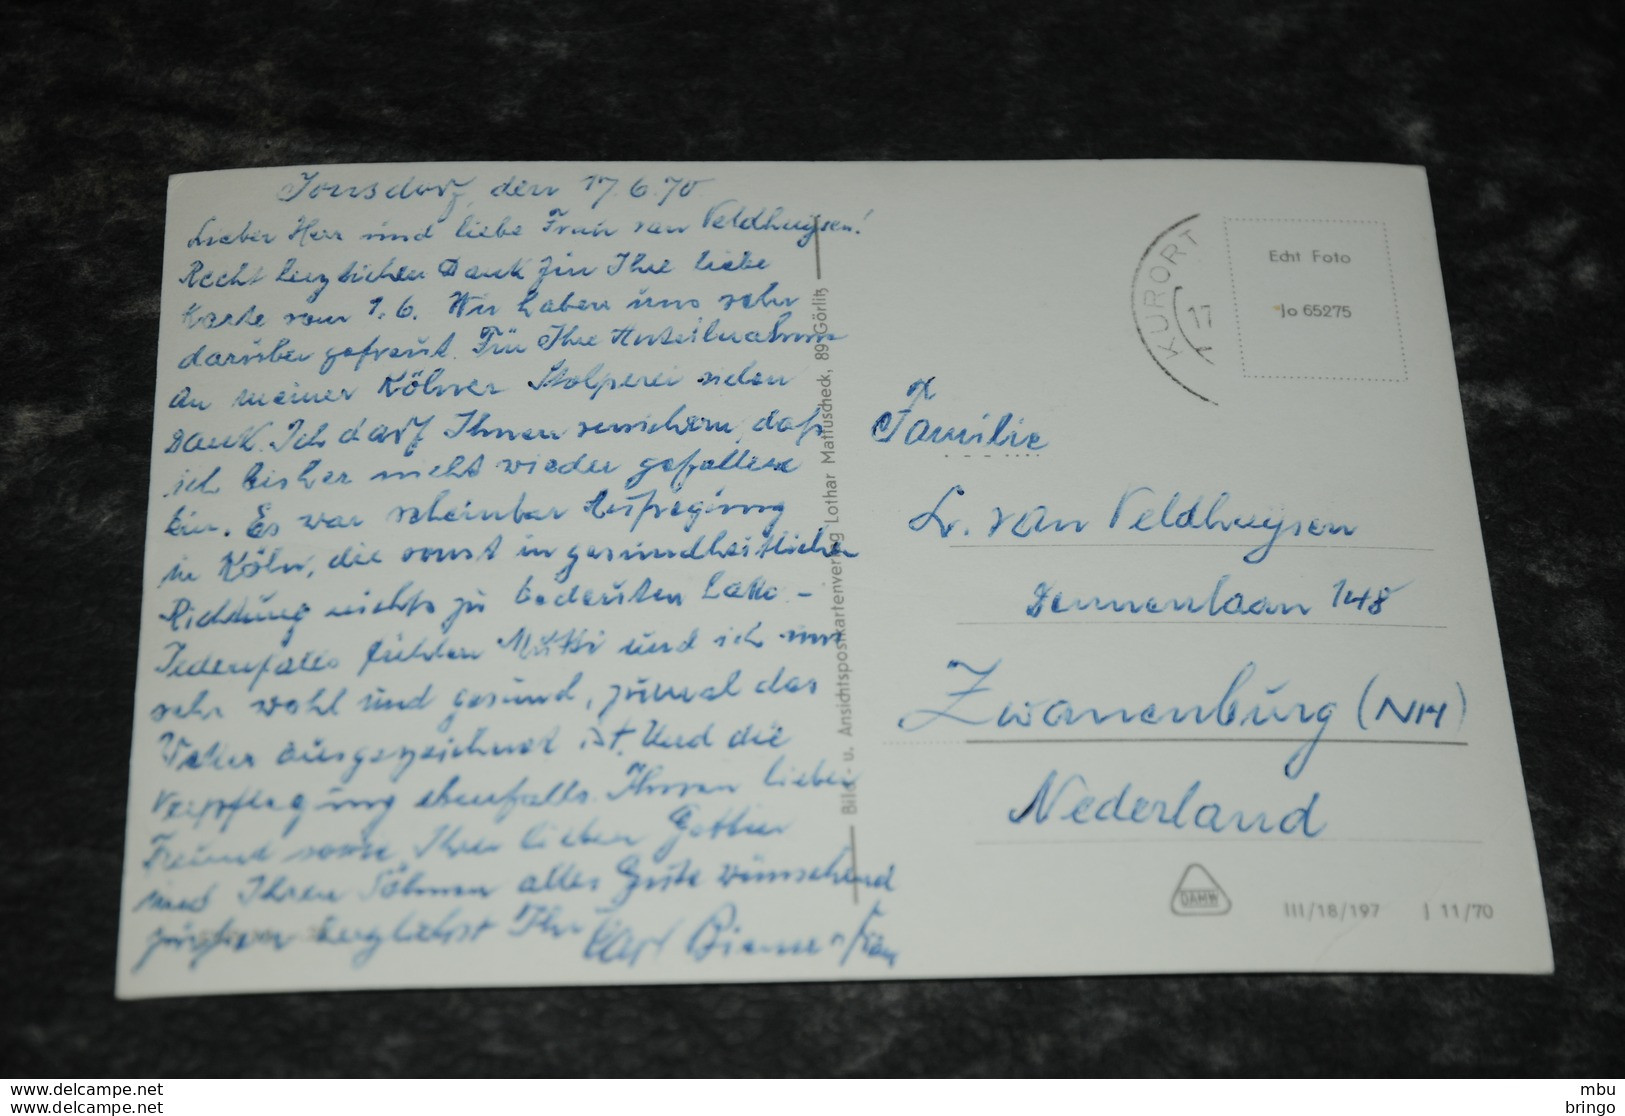 Jonsdorf, den 17.6.70
Lieber Herr und liebe Frau van Veldhuysen!
Recht herzlichen Dank für Ihre liebe
Karte vom 1.6. Wir haben uns sehr
darüber gefreut. Für Ihre Anteilnahme
an meiner Kölner Stolperei vielen
Dank. Ich darf Ihnen versichern, daß
ich bisher nicht wieder gefallen
bin. Es war scheinbar Aufregung
in Köln, die sonst in gesundheitlicher
Richtung nichts zu bedeuten hatte. -
Jedenfalls fühlen Mutti und ich uns
sehr wohl und gesund, zumal das
Wetter ausgezeichnet ist. Und die
Verpflegung ebenfalls. Ihnen lieber
Freund sowie Ihrer lieben Gattin
und Ihren Söhnen alles Gute wünschend
grüßen herzlichst Ihr Carl u. Frau
Bild- u. Ansichtspostkartenverlag Lothar Mattuscheck, 89 Görlitz
KURORT
17
Echt Foto
Jo 65275
Familie
L. van Veldhuysen
Dennenlaan 148
Zwanenburg (NH)
Nederland
DAHW
III/18/197 J 11/70
www.delcampe.net
www.delcampe.net
mbu
bringo